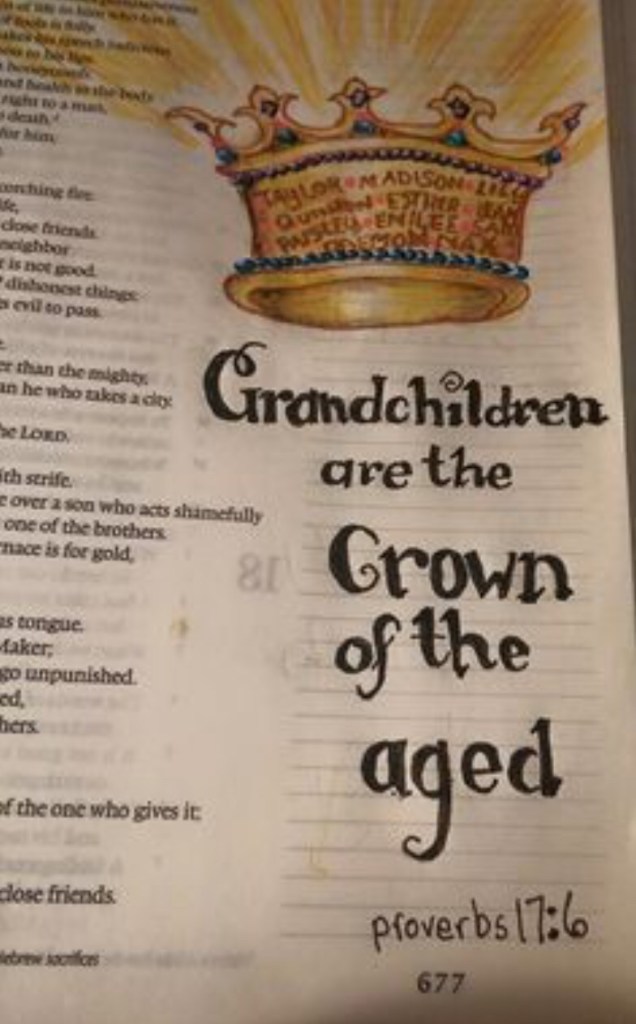 of fools is folly.
akes his speech judicious
to his lips.
honeycomb,
and health to the body.
right to a man,
death.
for him;
corching fire.
ife,
close friends.
neighbor
r is not good.
dishonest things;
s evil to pass.
er than the mighty,
an he who takes a city.
he LORD.
ith strife.
e over a son who acts shamefully
one of the brothers.
nace is for gold,
us tongue.
Maker;
go unpunished.
ed,
hers.
of the one who gives it;
close friends.
Hebrew sacrifices
TAYLOR MADISON LILY
ESTHER
PAISLEY EMILEE SAM
MAX
Grandchildren
are the
Crown
of the
aged
proverbs 17:6
677